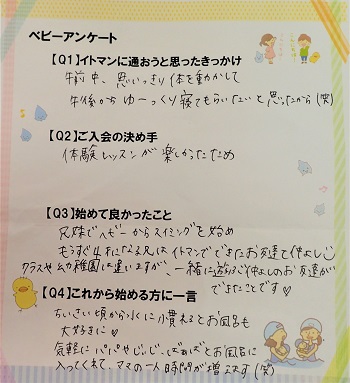 ベビーアンケート
【Q1】イトマンに通おうと思ったきっかけ
午前中、思いっきり体を動かして
午後からゆーっくり寝てもらいたいと思ったから(笑)
【Q2】ご入会の決め手
体験レッスンが楽しかったため
【Q3】始めて良かったこと
兄妹でベビーからスイミングを始め
もうすぐ4才になる兄はイトマンでできたお友達と仲よし
クラスや幼稚園は違いますが、一緒に遊ぶ仲よしのお友達が
できたことです♡
【Q4】これから始める方に一言
ちいさい頃から水に慣れるとお風呂も
大好きに♡
気軽にパパやじぃじ、ばぁばとお風呂に
入ってくれて、ママの一人時間が増えます(笑)